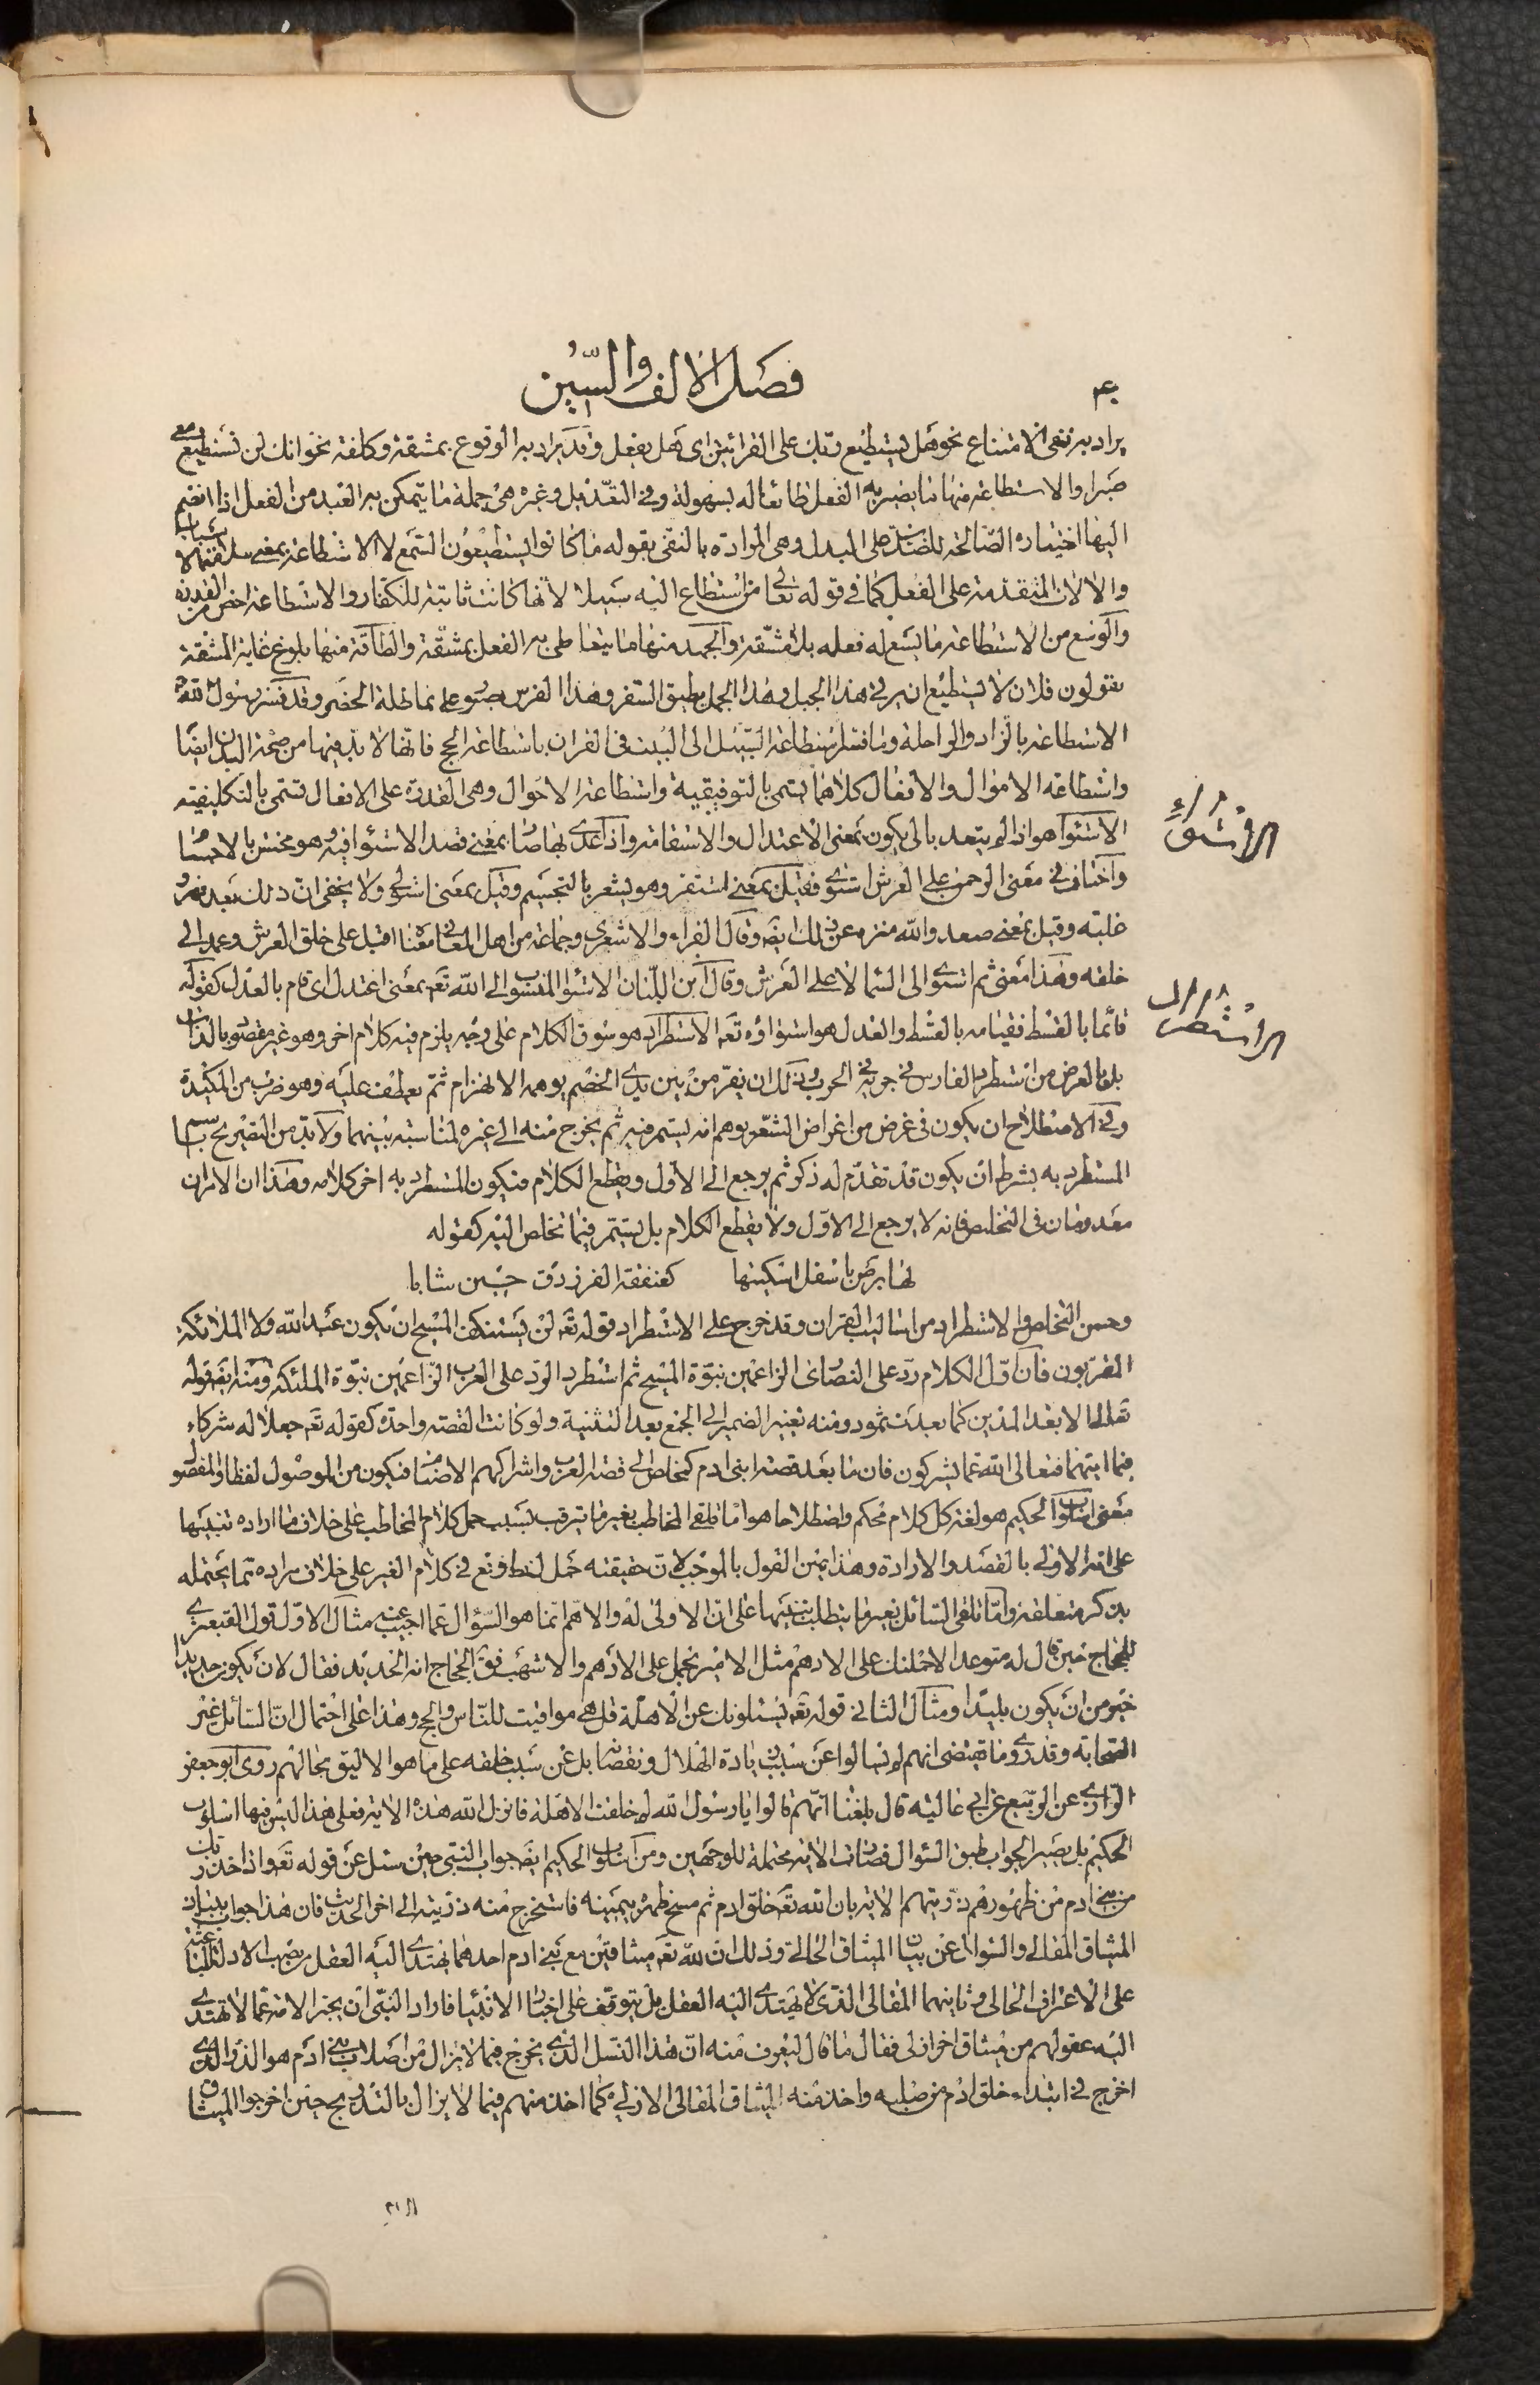 فصل الالف والسين
يراد به نفى الامتناع نحو هل يستطيع ربك على القرائتين اى هل يفعل وقد يراد به الوقوع بمشقة وكلفة نحو انك لن تستطيع معى
صبرا والاستطاعة منها ما يصير به الفعل طائعا له بسهولة وفى التعديل وغيره هى جملة ما يتمكن به العبد من الفعل اذا انضم
اليها اختياره الصالحة للضدين على البدل وهى المرادة بالنفى بقوله ما كانوا يستطيعون السمع لا الاستطاعة بمعنى سلامة الاسباب
والالات المتقدمة على الفعل كما فى قوله تعالى من استطاع اليه سبيلا لانها كانت ثابتة للكفار والاستطاعة اخص من القدرة
والوسع من الاستطاعة ما يسع له فعله بلا مشقة والجهد منها ما يتعاطى به الفعل بمشقة والطاقة منها بلوغ غاية المشقة
يقولون فلان لا يستطيع ان يرقى هذا الجبل وهذا الجمل يطيق السفر وهذا الفرس صبور على مماطلة الحضر وقد فسر رسول الله
الاستطاعة بالزاد والراحلة وما فسر استطاعة السبيل الى البيت فى القران باستطاعة الحج فانها لا بد فيها من صحة البدن ايضا
واستطاعة الاموال والافعال كلاهما يسمى بالتوفيقية واستطاعة الاحوال وهى القدرة على الافعال تسمى بالتكليفية
الاستواء هو اذا لم يتعد بالى يكون بمعنى الاعتدال والاستقامة واذا عدى بها صار بمعنى قصد الاستواء فيه وهو مختص بالاجسام
واختلف فى معنى الرحمن على العرش استوى فقيل بمعنى استقر وهو يشعر بالتجسيم وقيل بمعنى استولى ولا يخفى ان ذلك بعد قهر و
غلبته وقيل بمعنى صعد والله منزه عن ذلك ايضه وقال الفراء والاشعرى وجماعة من اهل المعانى معناه اقبل على خلق العرش وعمد الى
خلقه وهذا معنى ثم استوى الى السماء لا على العرش وقال ابن اللبان الاستواء المنسوب الى الله تعه بمعنى اعتدل اى قام بالعدل كقوله
قائما بالقسط فقيامه بالقسط والعدل هو استواؤه تعه الاستطراد هو سوق الكلام على وجه يلزم فيه كلام اخر وهو غير مقصود بالذات
بل بالعرض من استطرد الفارس فى جريه فى الحرب وذلك ان يفر من بين يدى الخصم يوهمه الانهزام ثم يعطف عليه وهو ضرب من المكيدة
وفى الاصطلاح ان يكون فى غرض من اغراض الشعر يوهم انه يستمر فيه ثم يخرج منه الى غيره لمناسبة بينهما ولا بد من التصريح باسم
المستطرد به بشرط ان يكون قد تقدم له ذكر ثم يرجع الى الاول ويقطع الكلام فيكون المستطرد به اخر كلامه وهذان الامران
معدومان فى التخلص فانه لا يرجع الى الاول ولا يقطع الكلام بل يستمر فيما تخلص اليه كقوله
لها برص باسفل اسكتيها كعنفقة الفرزدق حين شابا
وحسن التخلص والاستطراد من اساليب القران وقد خرج على الاستطراد قوله تعه لن يستنكف المسيح ان يكون عبدا لله ولا الملائكة
المقربون فان اول الكلام رد على النصارى الزاعمين نبوة المسيح ثم استطرد الرد على العرب الزاعمين نبوة الملئكة ومنه ايضه قوله
تعالى الا بعدا لمدين كما بعدت ثمود ومنه تغيير الضمير الى الجمع بعد التثنية ولو كانت القصة واحدة كقوله تعه جعلا له شركاء
فيما اتيهما فتعالى الله عما يشركون فان ما بعد قصة ابنى ادم كتخلص الى قصة العرب واشراكهم الاصنام فيكون من الموصول لفظا والمفصول
معنى اسلوب الحكيم هو لغة كل كلام محكم واصطلاحا هو اما تلقى المخاطب بغير ما يترقب بسبب حمل كلام المخاطب على خلاف ما اراده تنبيها
على انه الاولى بالقصد والارادة وهذا عين القول بالموجب لان حقيقته حمل لفظ وقع فى كلام الغير على خلاف مراده مما يحتمله
بذكر متعلقه واما تلقى السائل بغير ما يتطلب تنبيها على ان الاولى له والاهم انما هو السؤال عما اجيب عنه مثال الاول قول القبعثرى
للحجاج حين قال له متوعدا لاحملنك على الادهم مثل الامير يحمل على الادهم والاشهب فقال الحجاج انه الحديد فقال لان يكون حديدا
خير من ان يكون بليدا ومثال الثانى قوله تعه يسئلونك عن الاهلة قل هى مواقيت للناس والحج وهذا على احتمال ان السائل غير
الصحابة وقد روى ما يقتضى انهم لم يسالوا عن سبب زيادة الهلال ونقصانه بل عن سبب خلقه على ما هو الاليق بحالهم روى ابو جعفر
الرازى عن الربيع عن ابى عالية قال بلغنا انهم قالوا يا رسول الله لم خلقت الاهلة فانزل الله هذه الاية فعلى هذا ليس فيها اسلوب
الحكيم بل يصير الجواب طبق السؤال فصارت الاية محتملة للوجهين ومن اسلوب الحكيم ايضه جواب النبى حين سئل عن قوله تعه واذ اخذ ربك
من بنى ادم من ظهورهم ذريتهم الاية بان الله تعه خلق ادم ثم مسح ظهره بيمينه فاستخرج منه ذريته الى اخر الحديث فان هذا جواب ببيان
الميثاق المقالى والسؤال عن بيان الميثاق الحالى وذلك ان لله تعه ميثاقين مع بنى ادم احدهما يهتدى اليه العقل من نصب الادلة الباعثة
على الاعتراف الحالى وثانيهما المقالى الذى لا يهتدى اليه العقل بل يتوقف على اخبار الانبياء فاراد النبى ان يخبر الامة عما لا تهتدى
اليه عقولهم من ميثاق اخر ازلى فقال ما قال ليعرف منه ان هذا النسل الذى يخرج فيما لا يزال من اصلاب بنى ادم هو الذر الذى
اخرج فى ابتداء خلق ادم من صلبه واخذ منه الميثاق المقالى الازلى كما اخذ منهم فيما لا يزال بالتدريج حين اخرجوا الميثاق
الاستواء
الاستطراد